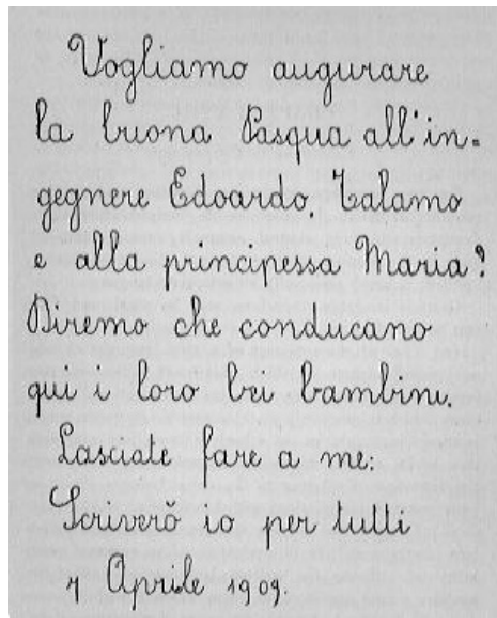 Vogliamo augurare
la buona Pasqua all'in-
gegnere Edoardo Talamo
e alla principessa Maria?
Diremo che conducano
qui i loro bei bambini.
Lasciate fare a me:
Scriverò io per tutti
7 Aprile 1909.